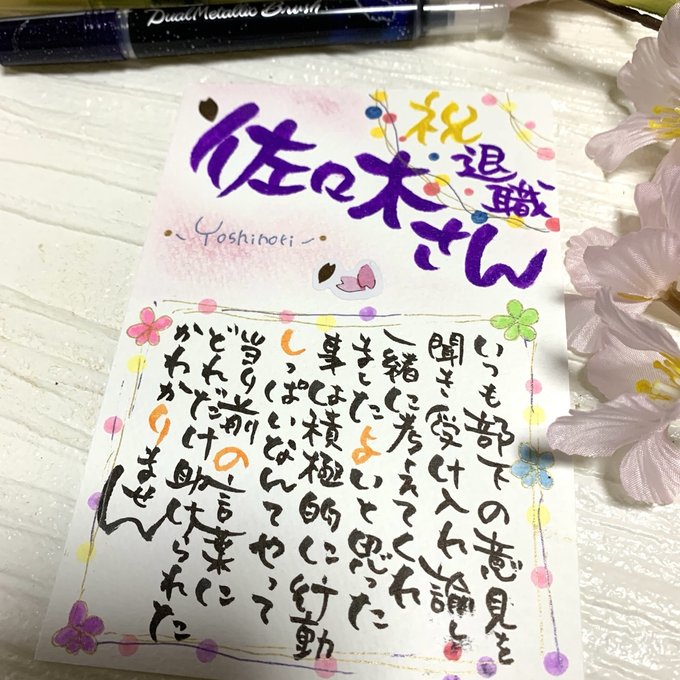 DualMetallic Brush
祝
退職
佐々木さん
Yoshinori
いつも部下の意見を
聞き受け入れ諭し
一緒に考えてくれ
ましたよいと思った
事は積極的に行動
しっぱいなんてやって
当り前の言葉に
どれだけ助けられた
かわかりません